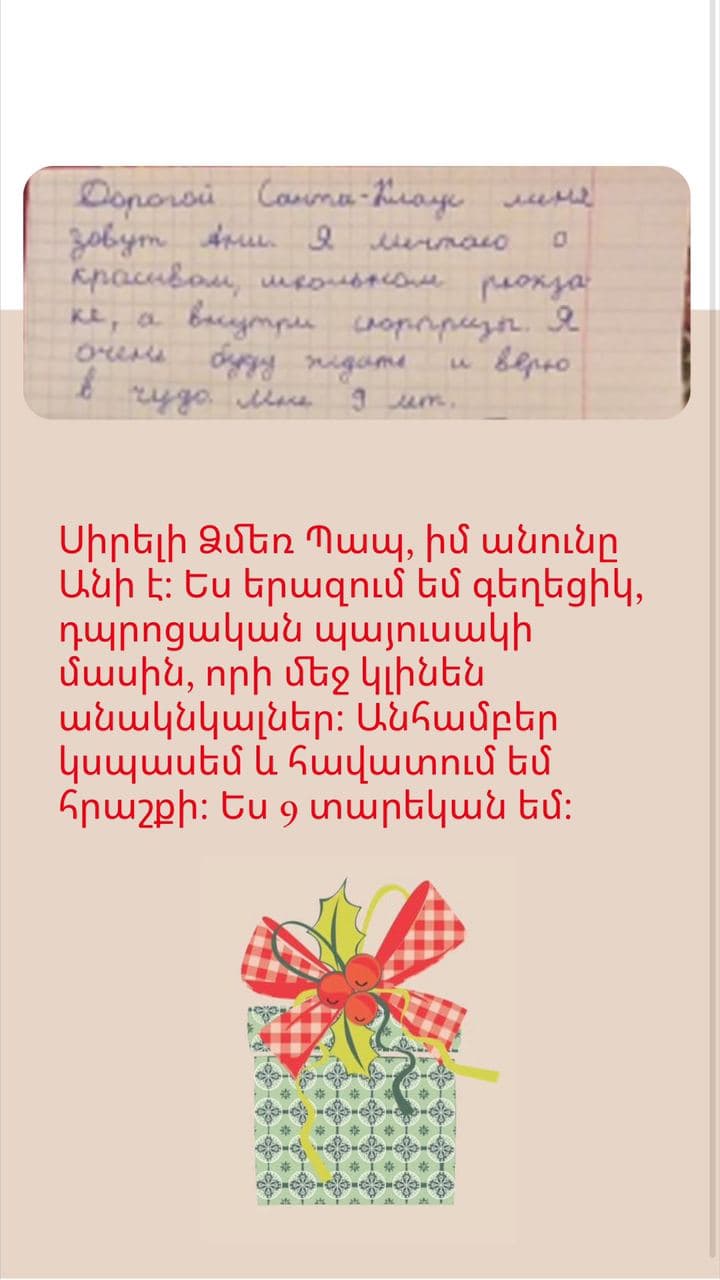 Дорогой Санта-Клаус меня
зовут Ани. Я мечтаю о
красивом, школьном рюкза-
ке, а внутри сюрпризы. Я
очень буду ждать и верю
в чудо. Мне 9 лет.
Սիրելի Ձմեռ Պապ, իմ անունը
Անի է: Ես երազում եմ գեղեցիկ,
դպրոցական պայուսակի
մասին, որի մեջ կլինեն
անակնկալներ: Անհամբեր
կսպասեմ և հավատում եմ
հրաշքի: Ես 9 տարեկան եմ: